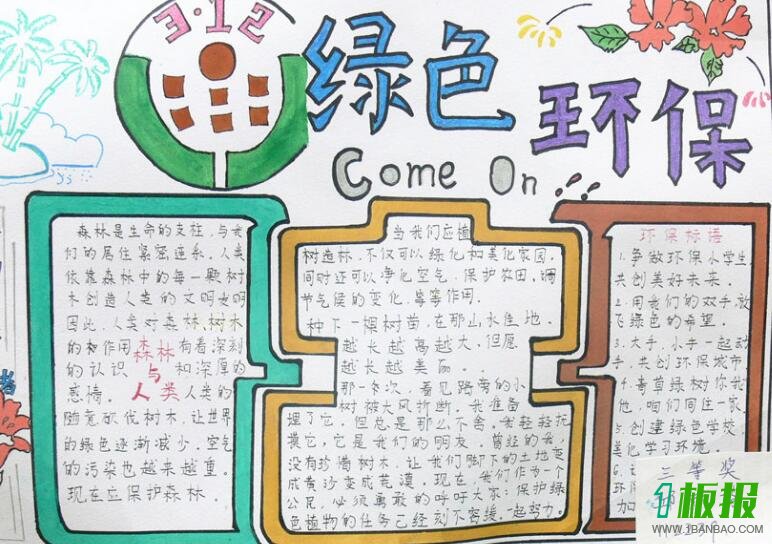 3·12
绿色环保
Come On!
森林是生命的支柱,与我
们的居住紧密连系,人类
依靠森林中的每一颗树
木创造人类的文明文明
因此,人类对森林,树木
的和作用 有着深刻
森林
的认识 和深厚的
与
感情。 人类的
人类
随意砍伐树木,让世界
的绿色逐渐减少,空气
的污染也越来越重。
现在应保护森林。
当我们应植
树造林,不仅可以绿化和美化家园,
同时还可以净化空气,保护农田,调
节气侯的变化,等等作用。
种下一棵树苗,在那山水佳地。
越长越高越大,但愿
越长越美丽。
那一次,看见路旁的小
树被大风折断。我准备
埋了它。但总是那么不舍,我轻轻抚
摸它,它是我们的朋友,曾经的我,
没有珍惜树木,让我们脚下的土地变
成黄沙变成荒漠,现在,我们作为一个
公民,必须勇敢的呼吁大家:保护绿
色植物的任务已经刻不容缓。一起努力。
环保标语
1.争做环保小学生,
共创美好未来.
2.用我们的双手,放
飞绿色的希望.
3.大手,小手一起动
手,共创环保城市
4.青草绿树你我
他,咱们同住一家.
5.创建绿色学校,
美化学习环境.
6.
环保
加
三等奖
板报
WWW.1BANBAO.COM